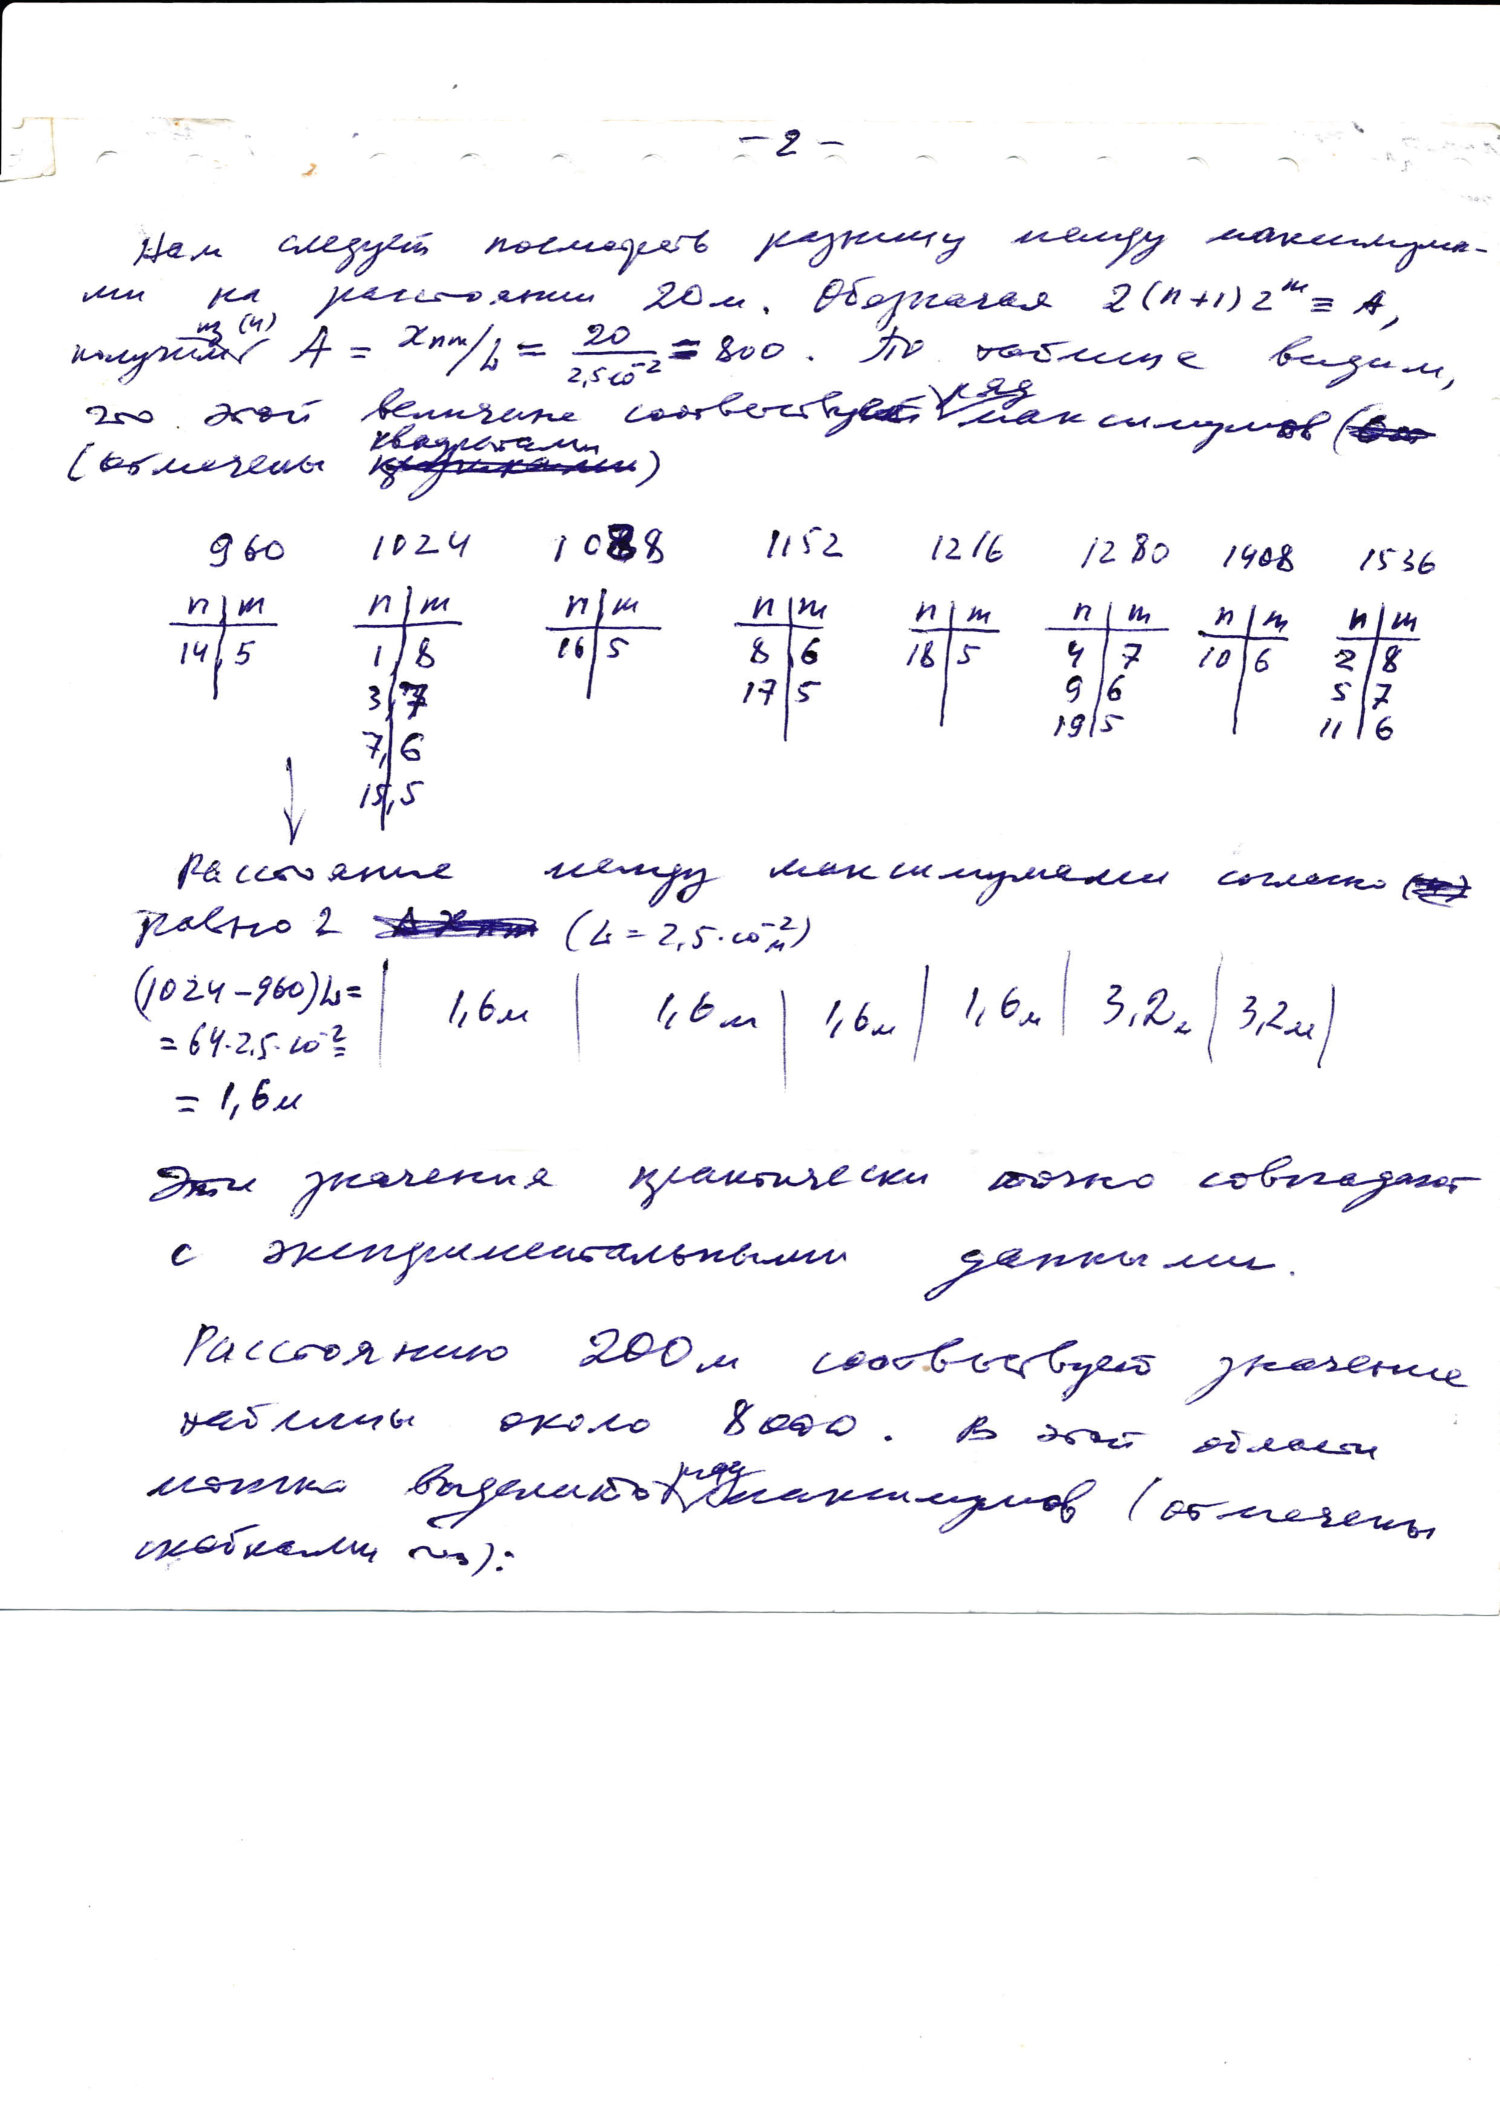 – 2 –
Нам следует посмотреть разницу между максимума-
ми на расстоянии 20 м. Обозначая 2(n+1)2^m ≡ A,
из (4)
получим A = x_nm/L = 20/2,5·10^-2 = 800. По таблице видим,
что этой величине соответствует ряд максимумов
(отмечены квадратами)
960 1024 1088 1152 1216 1280 1408 1536
n m n m n m n m n m n m n m n m
14 5 1 8 16 5 8 6 18 5 4 7 10 6 2 8
3 7 17 5 9 6 5 7
7 6 19 5 11 6
15 5
Расстояние между максимумами согласно
равно 2 (L = 2,5·10^-2 м)
(1024–960)L= 1,6м 1,6м 1,6м 1,6м 3,2м 3,2м
=64·2,5·10^-2=
= 1,6м
Эти значения практически точно совпадают
с экспериментальными данными.
Расстоянию 200м соответствует значение
таблицы около 8000. В этой области
можно выделить ряд максимумов (отмечены
скобками ):